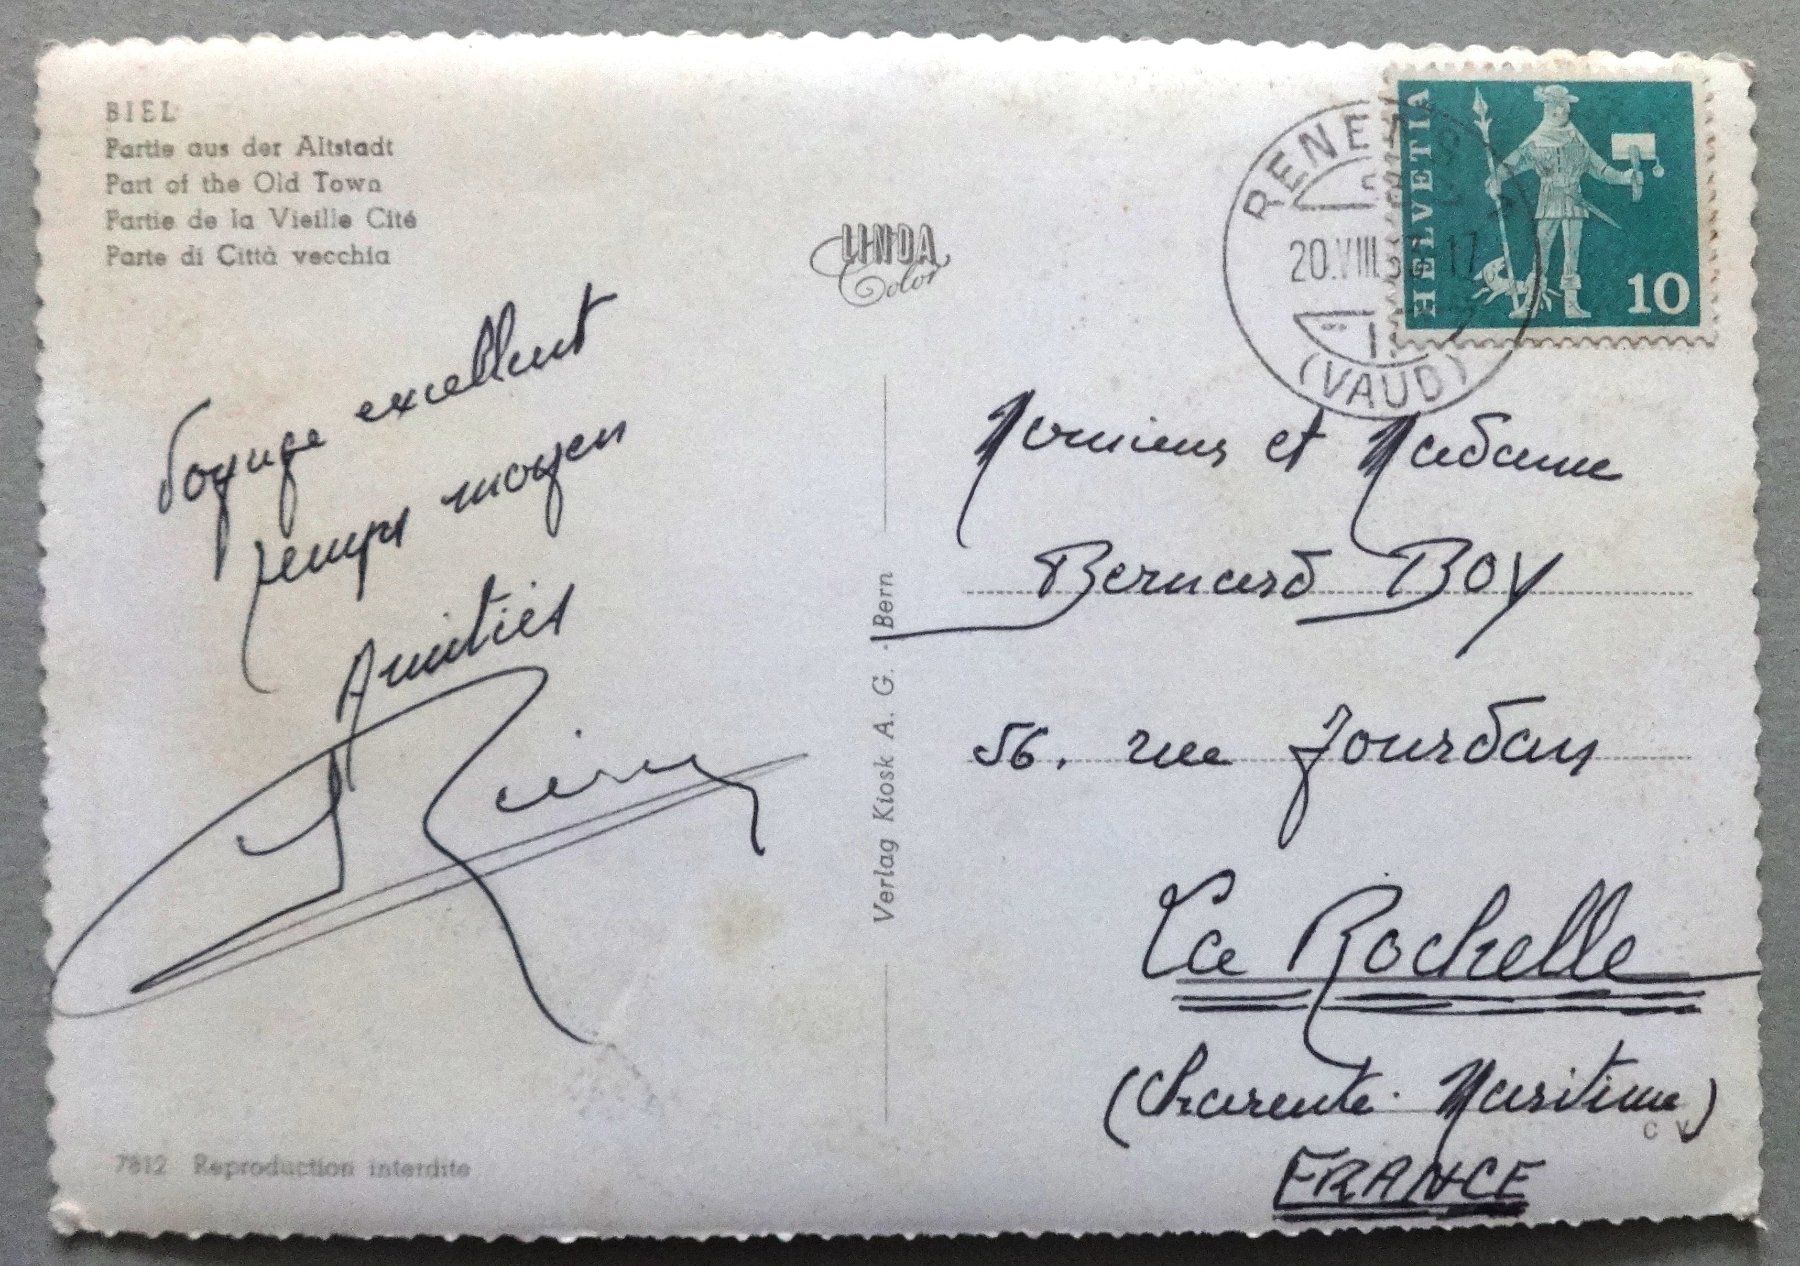 BIEL
Partie aus der Altstadt
Part of the Old Town
Partie de la Vieille Cité
Parte di Città vecchia
LINDA
Color
RENENS
20.VIII. 17
(VAUD)
HELVETIA
10
Voyage excellent
temps moyen
Amitiés
Verlag Kiosk A. G. · Bern
Monsieur et Madame
Bernard BOY
56, rue Jourdan
La Rochelle
(Charente-Maritime)
FRANCE
C V
7812 Reproduction interdite